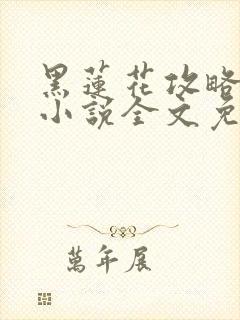 黑蓮花攻略
小說全文免
萬年展